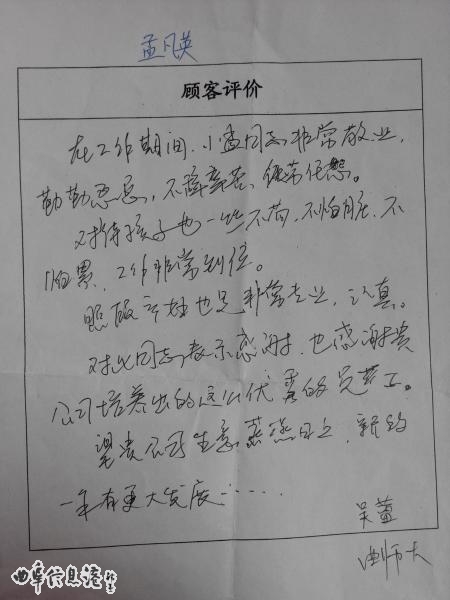 孟凡英
顾客评价
在工作期间,小孟同志非常敬业,
勤勤恳恳,不辞辛苦,任劳任怨。
对待孩子也一丝不苟,不怕脏、不
怕累,工作非常到位。
照顾产妇也是非常专业,认真。
对此同志表示感谢,也感谢贵
公司培养出的这么优秀的月嫂工。
望贵公司生意蒸蒸日上,新的
一年有更大发展……
吴萱
曲师大
曲阜信息港